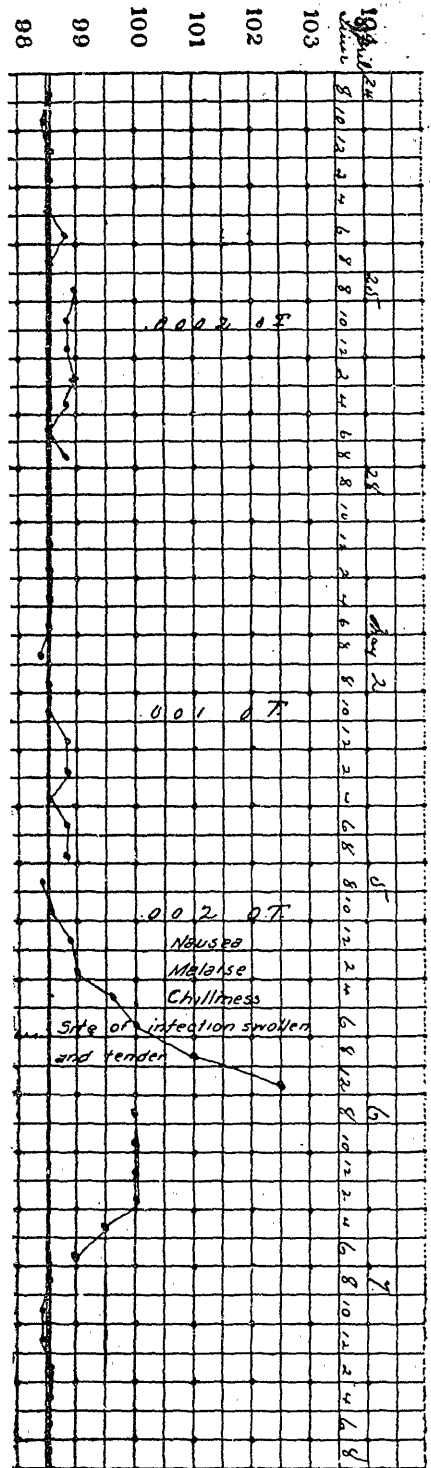 98 99 100 101 102 103
April 24
8 10 12 2 4 6 8
25
8 10 12 2 4 6 8
28
8 10 12 2 4 6 8
May 2
8 10 12 2 4 6 8
5
8 10 12 2 4 6 8 12
6
8 10 12 2 4 6
7
8 10 12 2 4 6 8
.0002 OT
.001 OT.
.002 OT.
Nausea
Malaise
Chillness
Site of infection swollen
and tender